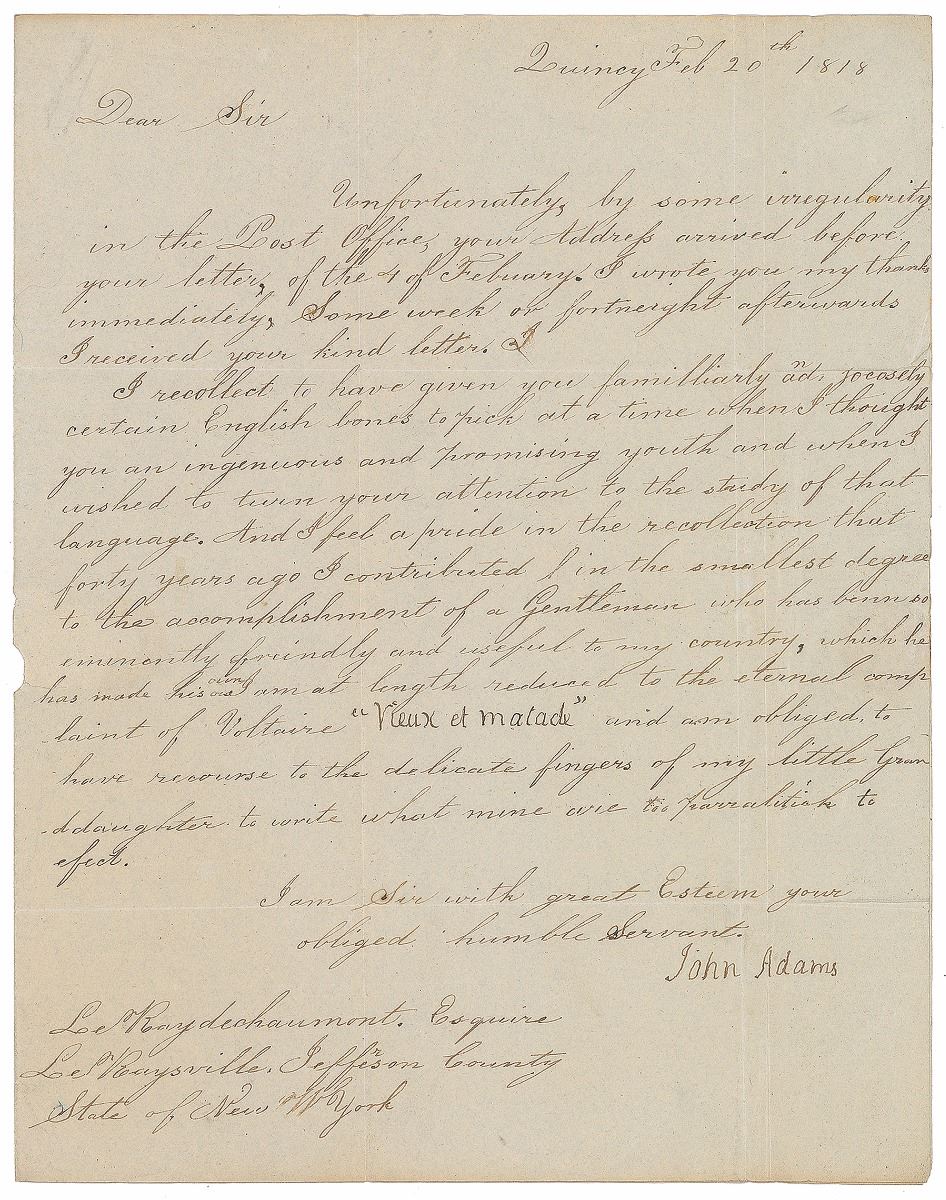 Quincy Feb 20th 1818
Dear Sir
Unfortunately, by some irregularity
in the Post Office, your Address arrived before
your letter, of the 4 of Febuary. I wrote you my thanks
immediately, Some week or fortneight afterwards
I received your kind letter. I
I recollect to have given you familliarly and, jocosely
certain English bones to pick at a time when I thought
you an ingenuous and promising youth and when I
wished to turn your attention to the study of that
language. And I feel a pride in the recollection that
forty years ago I contributed in the smallest degree
to the accomplishment of a Gentleman who has benn so
eminently freindly and useful to my country, which he
has made his own I am at length reduced to the eternal comp
laint of Voltaire "Vieux et malade" and am obliged, to
have recourse to the delicate fingers of my little Gran
-ddaughter to write what mine are too parralitick to
efect.
I am Sir with great Esteem your
obliged humble Servant.
John Adams
Le Raydechaumont. Esquire
Le Raysville. Jefferson County
State of New York